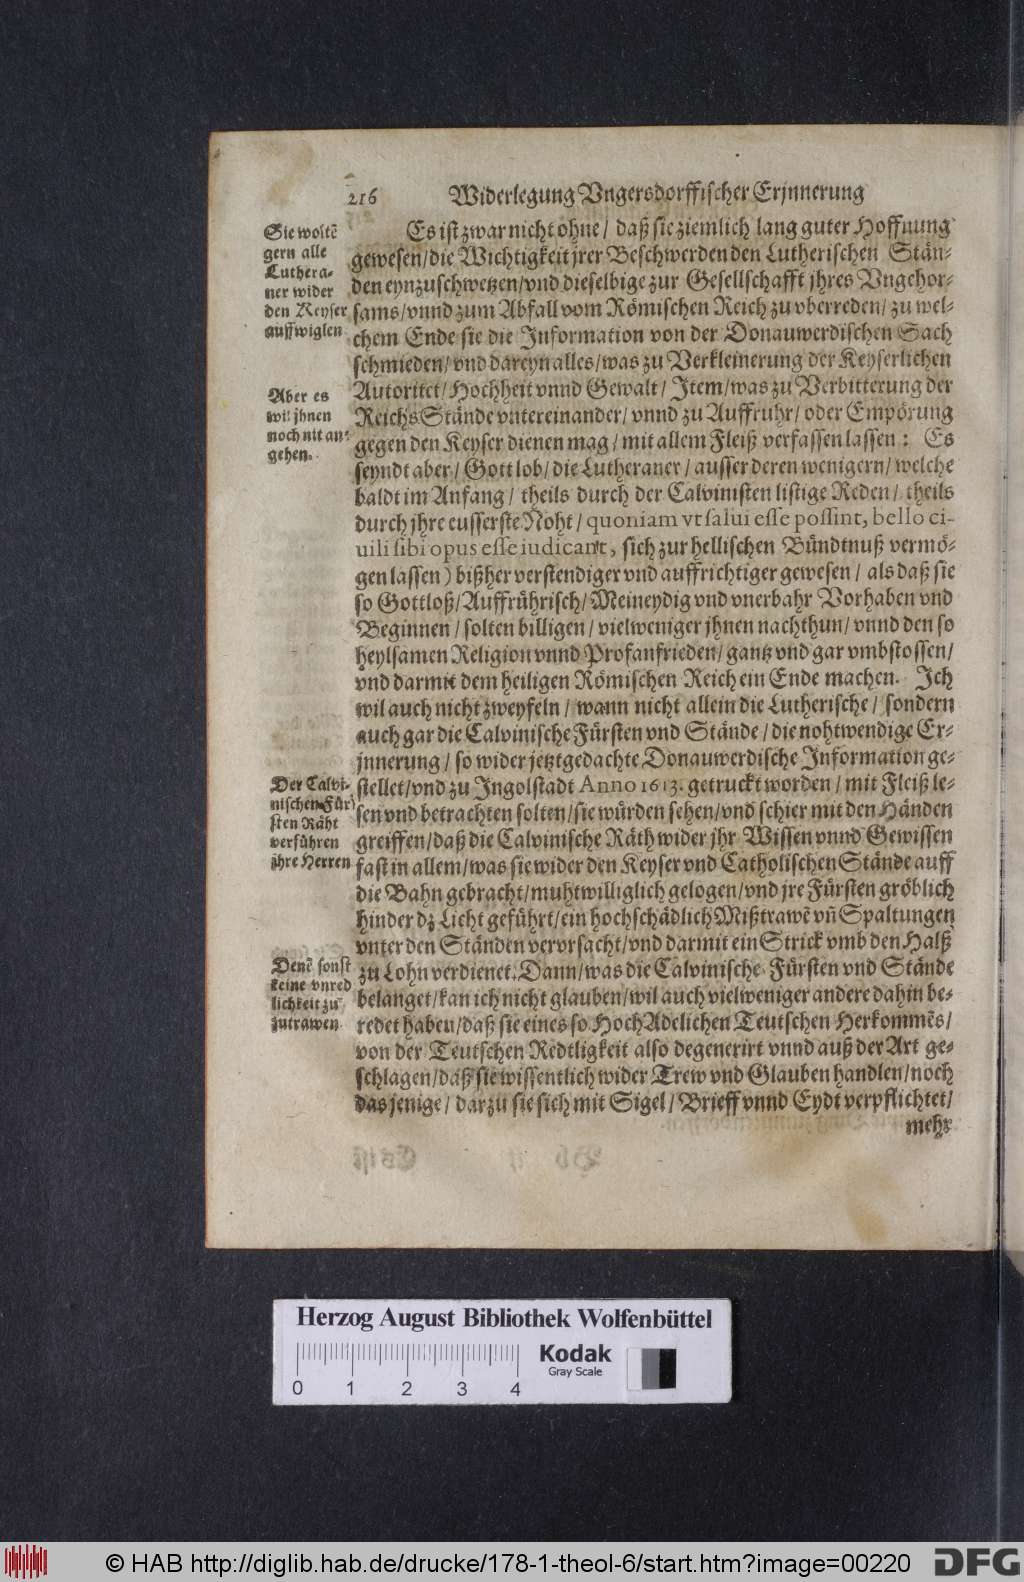 216 Widerlegung Vngersdorffischer Erjnnerung
Sie woltẽ
gern alle
Luthera-
ner wider
den Keyser
auffwiglen
Aber es
wil jhnen
noch nit an-
gehen.
Es ist zwar nicht ohne / daß sie ziemlich lang guter Hoffnung
gewesen / die Wichtigkeit jrer Beschwerden den Lutherischen Stän-
den eynzuschwetzen / vnd dieselbige zur Gesellschafft jhres Vngehor-
sams / vnnd zum Abfall vom Römischen Reich zu vberreden / zu wel-
chem Ende sie die Information von der Donauwerdischen Sach
schmieden / vnd dareyn alles / was zu Verkleinerung der Keyserlichen
Autoritet / Hochheit vnnd Gewalt / Item / was zu Verbitterung der
ReichsStände vntereinander / vnnd zu Auffruhr / oder Empörung
gegen den Keyser dienen mag / mit allem Fleiß verfassen lassen : Es
seyndt aber / Gott lob / die Lutheraner / ausser deren wenigern / welche
baldt im Anfang / theils durch der Calvinisten listige Reden / theils
durch jhre eusserste Noht / quoniam vt salui esse possint, bello ci-
uili sibi opus esse iudicant, sich zur hellischen Bündtnuß vermö-
gen lassen ) bißher verstendiger vnd auffrichtiger gewesen / als daß sie
so Gottloß / Auffrührisch / Meineydig vnd vnerbahr Vorhaben vnd
Beginnen / solten billigen / vielweniger jhnen nachthun / vnnd den so
heylsamen Religion vnnd Profanfrieden / gantz vnd gar vmbstossen /
vnd darmit dem heiligen Römischen Reich ein Ende machen. Ich
wil auch nicht zweyfeln / wann nicht allein die Lutherische / sondern
auch gar die Calvinische Fürsten vnd Stände / die nohtwendige Er-
jnnerung / so wider jetztgedachte Donauwerdische Information ge-
stellet / vnd zu Ingolstadt Anno 1613. getruckt worden / mit Fleiß le-
sen vnd betrachten solten / sie würden sehen / vnd schier mit den Händen
greiffen / daß die Calvinische Räth wider jhr Wissen vnnd Gewissen
fast in allem / was sie wider den Keyser vnd Catholischen Stände auff
die Bahn gebracht / muhtwilliglich gelogen / vnd jre Fürsten gröblich
hinder dz Licht geführt / ein hochschädlich Mißtrawẽ vñ Spaltungen
vnter den Ständen vervrsacht / vnd darmit ein Strick vmb den Halß
zu Lohn verdienet. Dann / was die Calvinische Fürsten vnd Stände
belanget / kan ich nicht glauben / wil auch vielweniger andere dahin be-
redet haben / daß sie eines so HochAdelichen Teutschen Herkommẽs /
von der Teutschen Redtligkeit also degenerirt vnnd auß der Art ge-
schlagen / daß sie wissentlich wider Trew vnd Glauben handlen / noch
das jenige / darzu sie sich mit Sigel / Brieff vnnd Eydt verpflichtet /
mehr
Der Calvi-
nischen Für-
sten Räht
verführen
jhre Herren
Denẽ sonst
keine vnred
lichkeit zu
zutrawen
Herzog August Bibliothek Wolfenbüttel
Kodak
Gray Scale
0 1 2 3 4
© HAB http://diglib.hab.de/drucke/178-1-theol-6/start.htm?image=00220
DFG